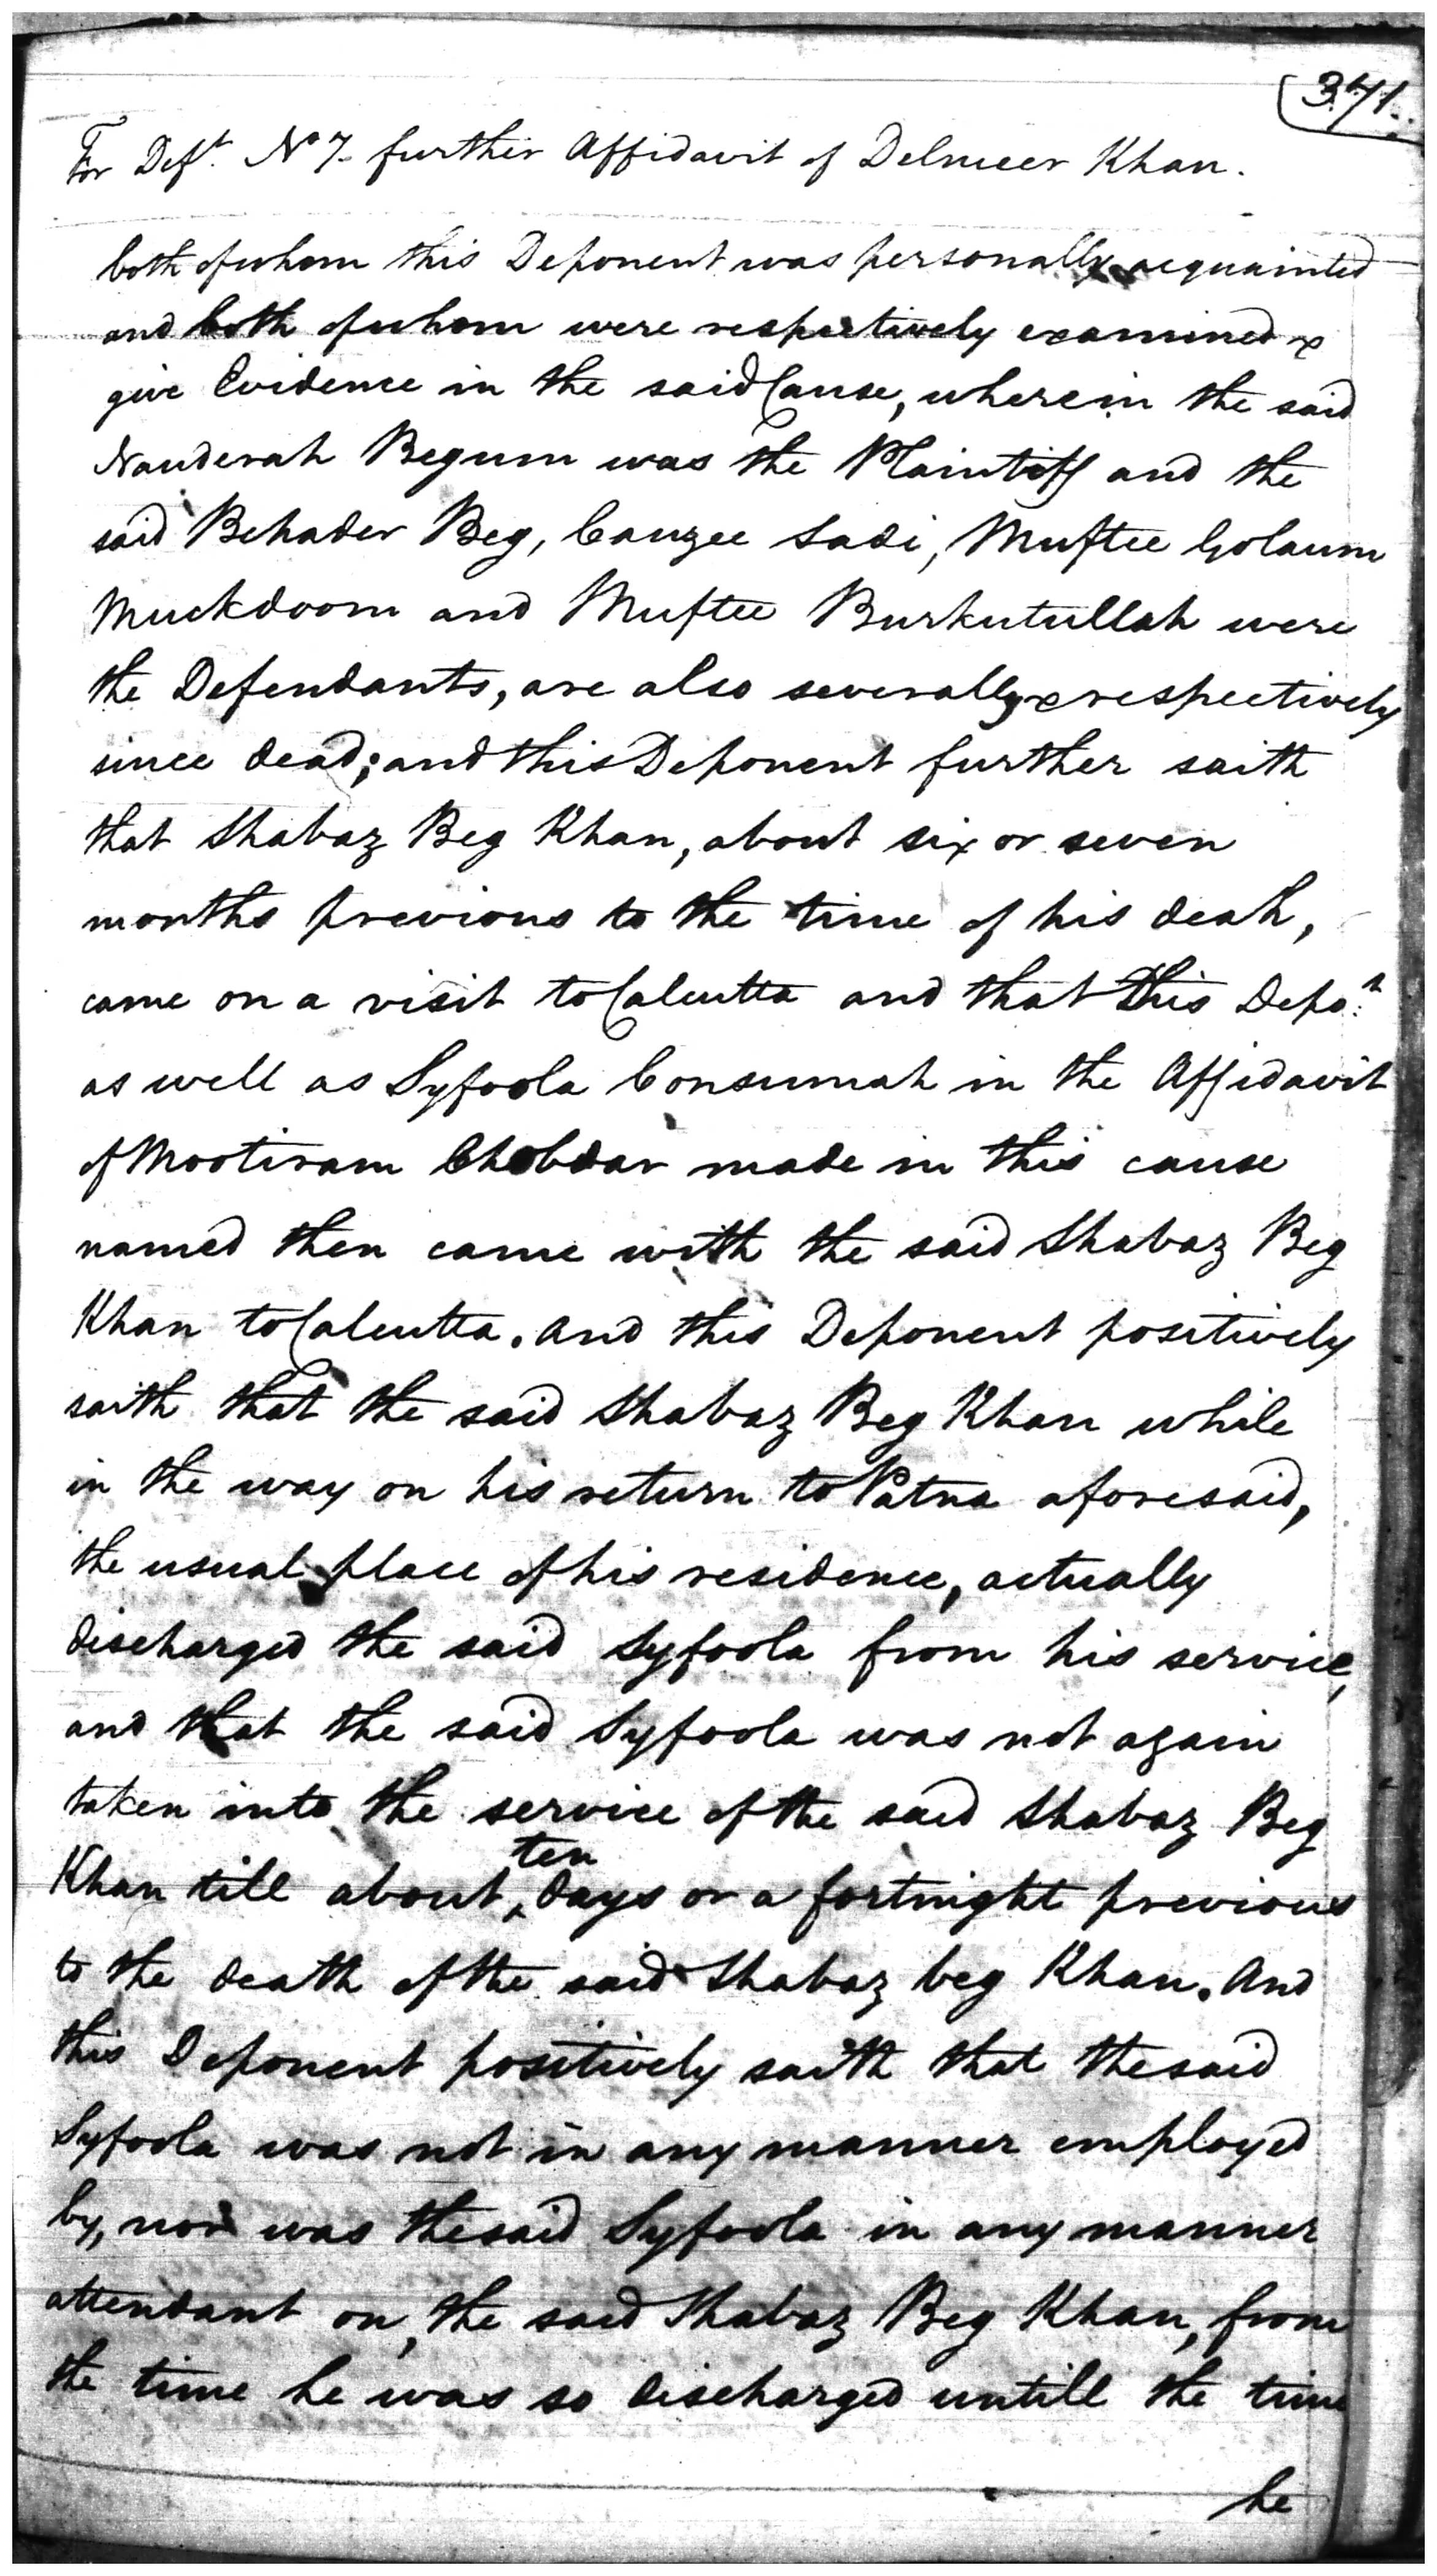 341.
For Deft. No 7. further Affidavit of Delmeer Khan.
both of whom this Deponent was personally acquainted
and both of whom were respectively examined &
give Evidence in the said Cause, wherein the said
Nauderah Begum was the Plaintiff and the
said Behader Beg, Cauzee Sadi, Muftee Golaum
Muckdoom and Muftee Burkutullah were
the Defendants, are also severally & respectively
since dead; and this Deponent further saith
that Shabaz Beg Khan, about six or seven
months previous to the time of his death,
came on a visit to Calcutta and that this Depo.t
as well as Syfoola Consumah in the Affidavit
of Mootiram Chobdar made in this cause
named then came with the said Shabaz Beg
Khan to Calcutta. And this Deponent positively
saith that the said Shabaz Beg Khan while
in the way on his return to Patna aforesaid,
the usual place of his residence, actually
discharged the said Syfoola from his service,
and that the said Syfoola was not again
taken into the service of the said Shabaz Beg
Khan till about ten days or a fortnight previous
to the death of the said Shabaz beg Khan. And
this Deponent positively saith that the said
Syfoola was not in any manner employed
by, nor was the said Syfoola in any manner
attendant on, the said Shabaz Beg Khan, from
the time he was so discharged untill the time
he